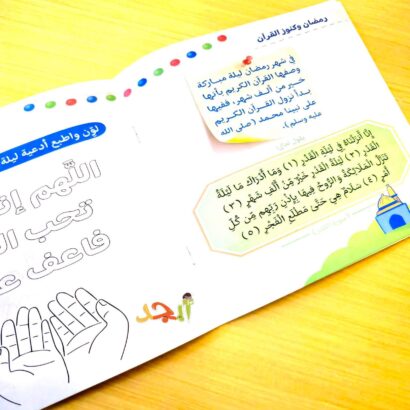 رمضان وكنوز القرآن
في شهر رمضان ليلة مباركة
وصفها القرآن الكريم بأنها
خير من ألف شهر، ففيها
بدأ نزول القرآن الكريم
على نبينا محمد (صلى الله
عليه وسلم).
إِنَّا أَنْزَلْنَاهُ فِي لَيْلَةِ الْقَدْرِ (١) وَمَا أَدْرَاكَ مَا لَيْلَةُ
الْقَدْرِ (٢) لَيْلَةُ الْقَدْرِ خَيْرٌ مِّنْ أَلْفِ شَهْرٍ (٣)
تَنَزَّلُ الْمَلَائِكَةُ وَالرُّوحُ فِيهَا بِإِذْنِ رَبِّهِم مِّن كُلِّ
أَمْرٍ (٤) سَلَامٌ هِيَ حَتَّىٰ مَطْلَعِ الْفَجْرِ (٥)
لوّن واطبع أدعية ليلة
اللّهم
تحب
فاعف
المجد